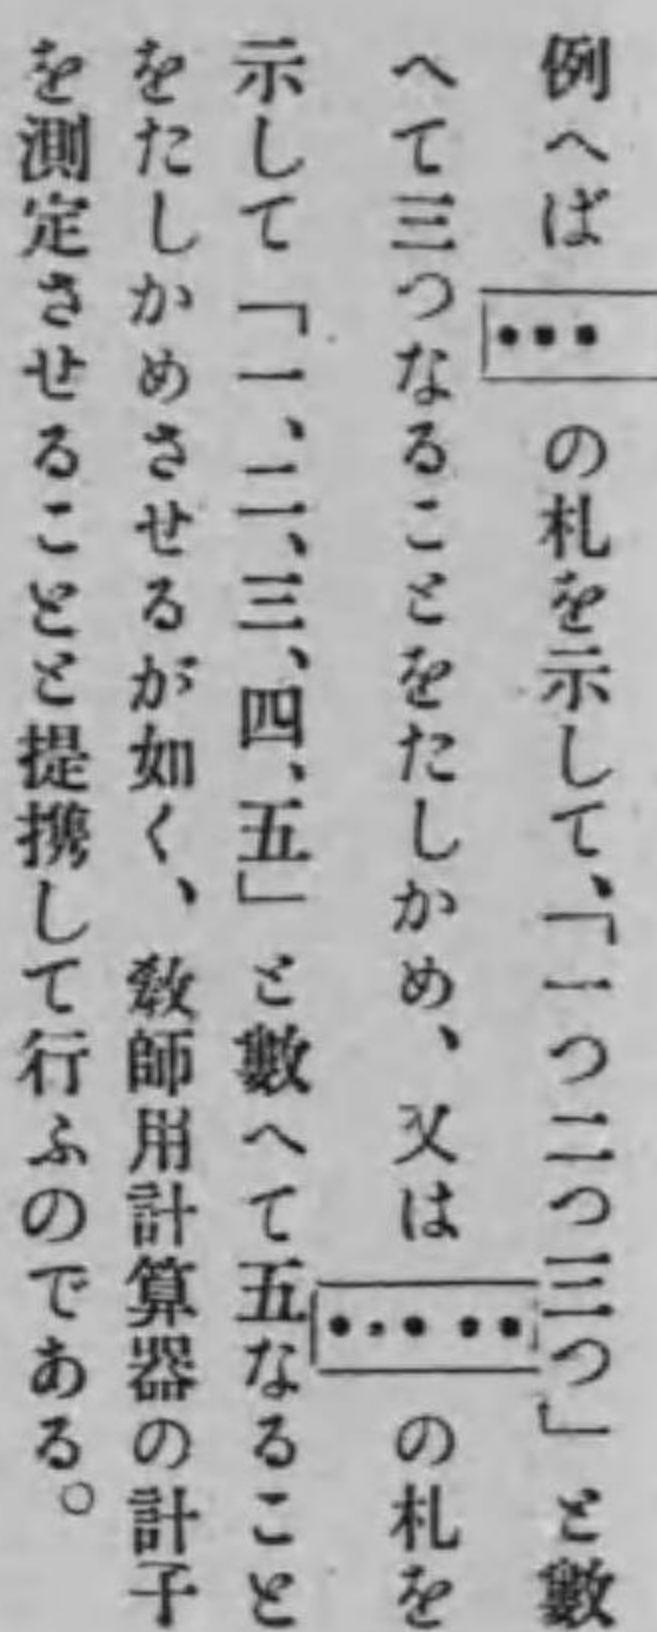 例へば●●●の札を示して、「一つ二つ三つ」と數
へて三つなることをたしかめ、又は●●●●●の札を
示して「一、二、三、四、五」と數へて五なること
をたしかめさせるが如く、敎師用計算器の計子
を測定させることと提携して行ふのである。